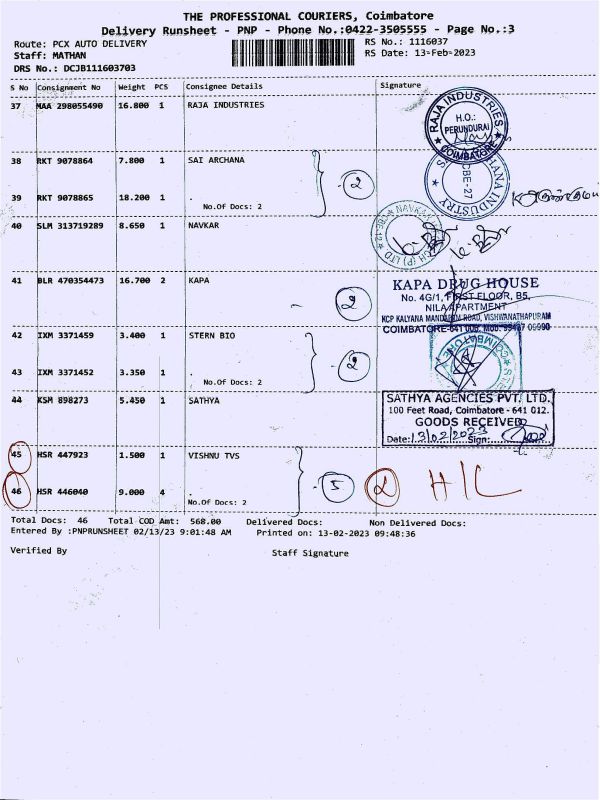 THE PROFESSIONAL COURIERS, Coimbatore
Delivery Runsheet - PNP - Phone No.:0422-3505555 - Page No.:3
Route: PCX AUTO DELIVERY
RS No.: 1116037
Staff: MATHAN
RS Date: 13-Feb-2023
DRS No.: DCJB111603703
S No Consignment No Weight PCS Consignee Details Signature
37 MAA 298055490 16.800 1 RAJA INDUSTRIES
RAJA INDUSTRIES
H.O.:
PERUNDURAI
COIMBATORE
38 RKT 9078864 7.800 1 SAI ARCHANA
2
CBE-27
INDUSTRY
39 RKT 9078865 18.200 1 .
No.Of Docs: 2
40 SLM 313719289 8.650 1 NAVKAR
41 BLR 470354473 16.700 2 KAPA
2
KAPA DRUG HOUSE
No. 4G/1, FIRST FLOOR, B5,
NILA APARTMENT
KCP KALYANA MANDAPAM ROAD, VISHWANATHAPURAM
COIMBATORE-641 006.
42 IXM 3371459 3.400 1 STERN BIO
2
43 IXM 3371452 3.350 1 .
No.Of Docs: 2
44 KSM 898273 5.450 1 SATHYA
SATHYA AGENCIES PVT. LTD.
100 Feet Road, Coimbatore - 641 012.
GOODS RECEIVED
Date: 13/02/2023 Sign:
45 HSR 447923 1.500 1 VISHNU TVS
5
2
H/L
46 HSR 446040 9.000 4 .
No.Of Docs: 2
Total Docs: 46 Total COD Amt: 568.00 Delivered Docs: Non Delivered Docs:
Entered By :PNPRUNSHEET 02/13/23 9:01:48 AM Printed on: 13-02-2023 09:48:36
Verified By Staff Signature